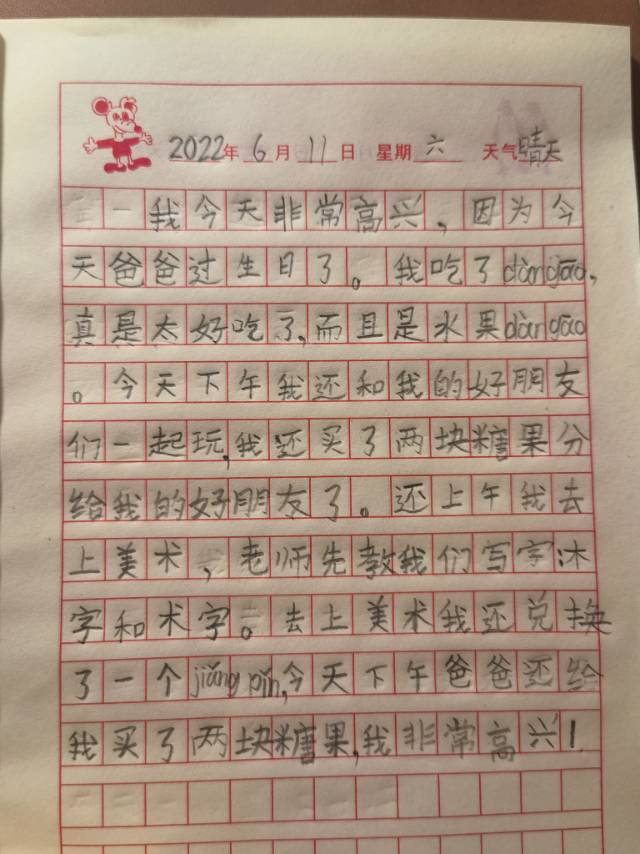 2022年6月11日 星期六 天气晴天
一我今天非常高兴,因为今
天爸爸过生日了。我吃了dàngāo,
真是太好吃了,而且是水果dàngāo
。今天下午我还和我的好朋友
们一起玩,我还买了两块糖果分
给我的好朋友了。还上午我去
上美术,老师先教我们写字沐
字和术字。去上美术我还兑换
了一个jiǎng pǐn,今天下午爸爸还给
我买了两块糖果,我非常高兴!